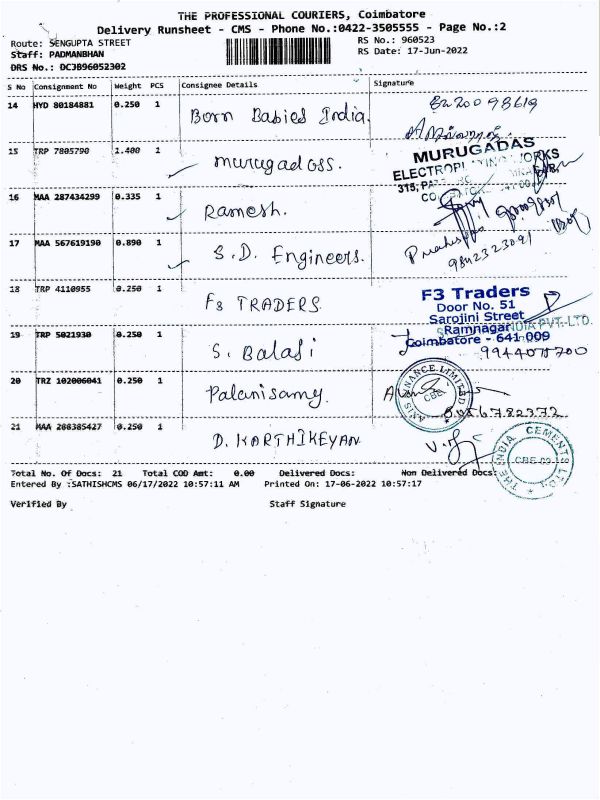 THE PROFESSIONAL COURIERS, Coimbatore
Delivery Runsheet - CMS - Phone No.:0422-3505555 - Page No.:2
Route: SENGUPTA STREET
RS No.: 960523
Staff: PADMANBHAN
RS Date: 17-Jun-2022
DRS No.: DCJB96052302
S No Consignment No Weight PCS Consignee Details Signature
14 HYD 80184881 0.250 1 Born Babies India.
15 TRP 7805790 1.400 1 murugadoss.
MURUGADAS
16 MAA 287434299 0.335 1 Ramesh.
17 MAA 567619190 0.890 1 S.D. Engineers.
9842323091
18 TRP 4110955 0.250 1 F3 TRADERS
F3 Traders
Door No. 51
Sarojini Street
Ramnagar
Coimbatore - 641 009
19 TRP 5021930 0.250 1 S. Balaji
20 TRZ 102006041 0.250 1 Palanisamy.
AXIS FINANCE LIMITED
CBE
21 MAA 288385427 0.250 1 D. KARTHIKEYAN
THE INDIA CEMENTS LTD.
Total No. Of Docs: 21 Total COD Amt: 0.00 Delivered Docs: Non Delivered Docs:
Entered By :SATHISHCMS 06/17/2022 10:57:11 AM Printed On: 17-06-2022 10:57:17
Verified By Staff Signature